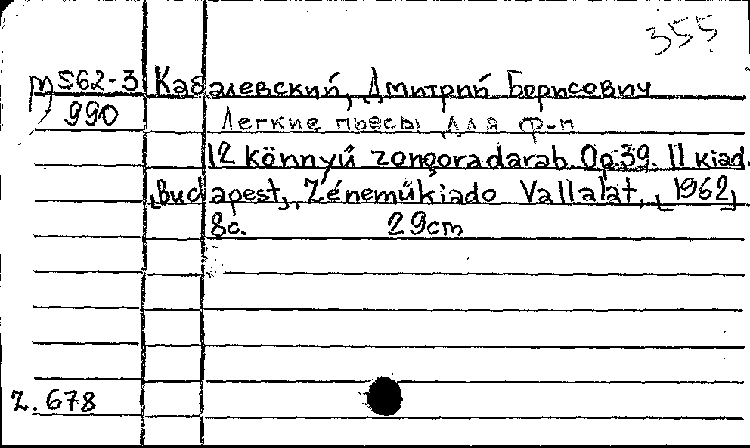 355
м562-3 Кабалевский, Дмитрий Борисович
990 Легкие пьесы для ф-п
12 könnyű zongoradarab Op 39. II kiad.
[Budapest], Zéneműkiado Vallalat, [1962]
8с. 29cm
Z. 678